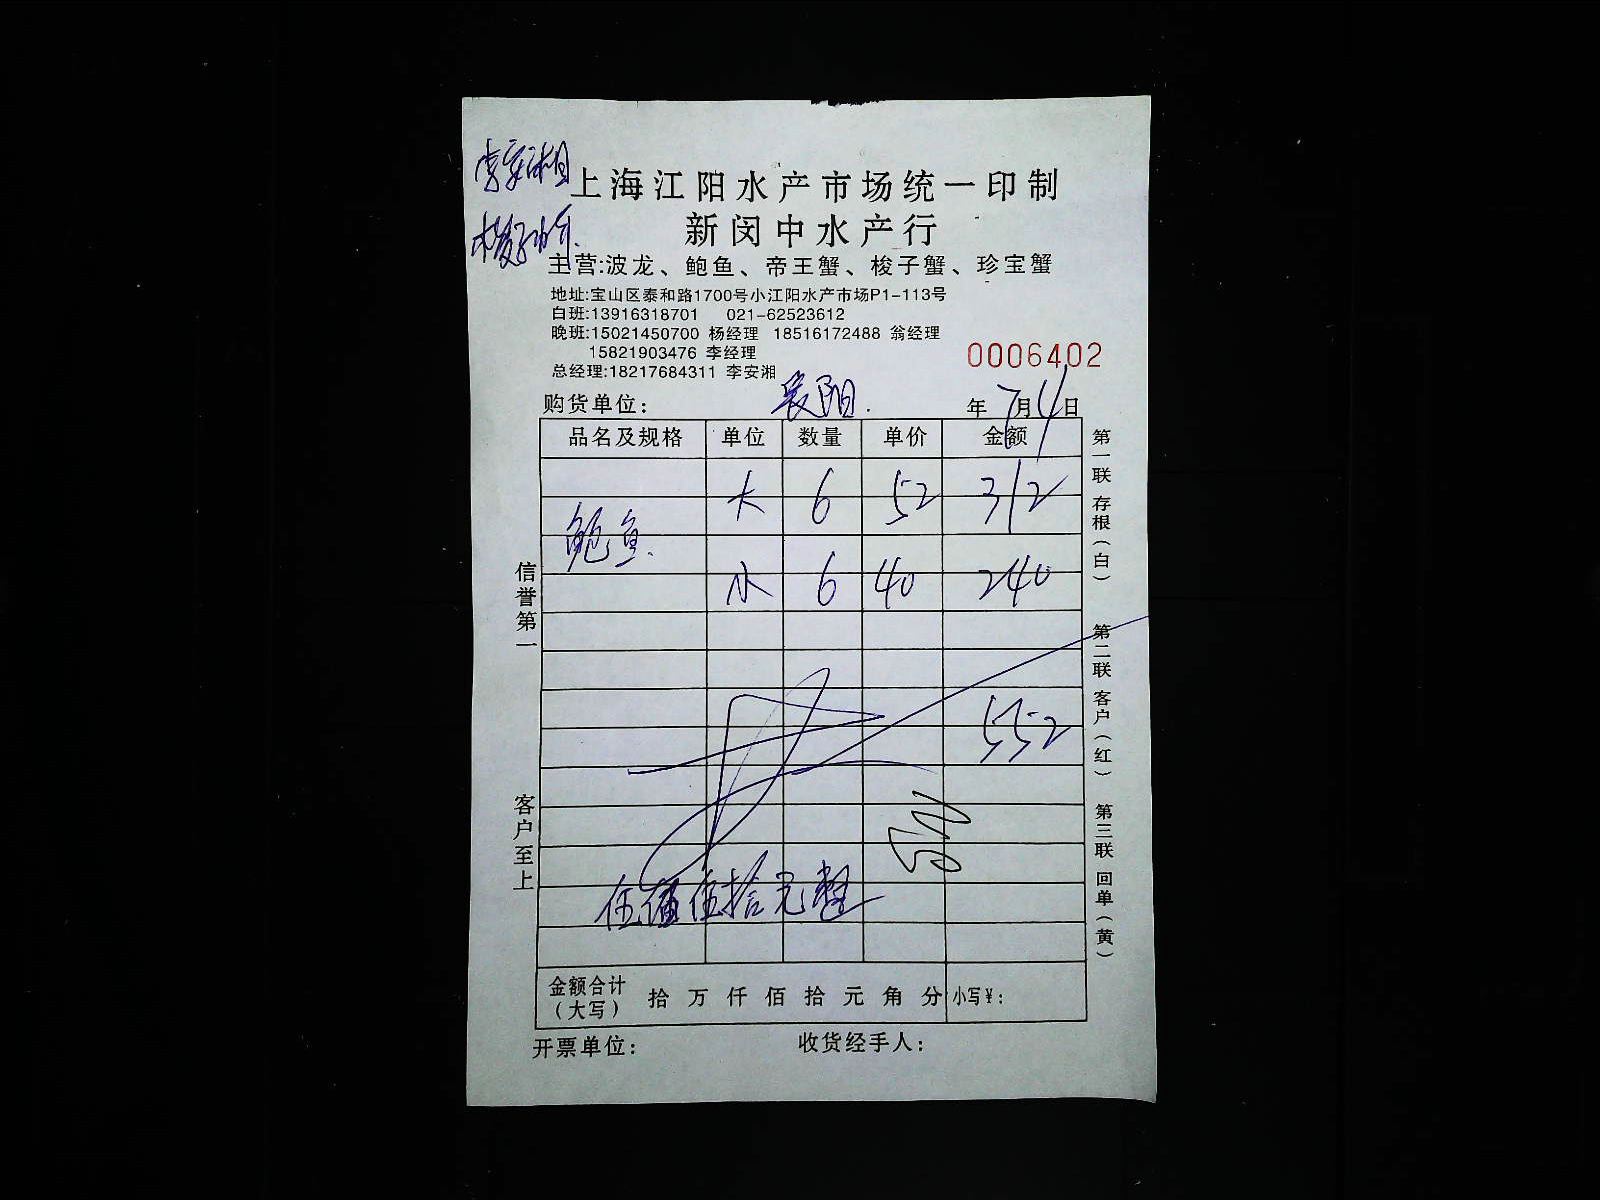 李安湘
上海江阳水产市场统一印制
新闵中水产行
主营:波龙、鲍鱼、帝王蟹、梭子蟹、珍宝蟹
地址:宝山区泰和路1700号小江阳水产市场P1-113号
白班:13916318701 021-62523612
晚班:15021450700 杨经理 18516172488 翁经理
15821903476 李经理
总经理:18217684311 李安湘
0006402
购货单位: 襄阳. 年 7月4日
品名及规格 单位 数量 单价 金额
大 6 52 312
鲍鱼.
小 6 40 240
552
伍佰伍拾元整
金额合计
(大写) 拾 万 仟 佰 拾 元 角 分 小写¥:
开票单位: 收货经手人:
信誉第一
客户至上
第一联 存根(白)
第二联 客户(红)
第三联 回单(黄)